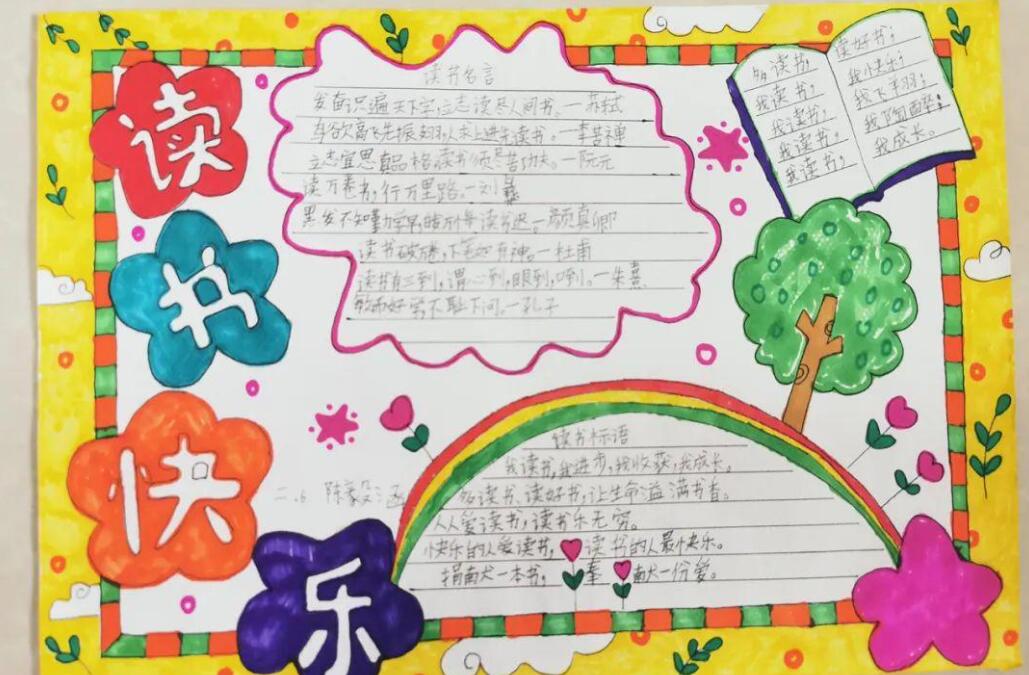 读
书
快
乐
读书名言
发奋识遍天下字,立志读尽人间书。—苏轼
鸟欲高飞先振羽,人求上进先读书。—李苦禅
立志宜思真品格,读书须尽苦功夫。—阮元
读万卷书,行万里路。—刘彝
黑发不知勤学早,白首方悔读书迟。—颜真卿
读书破万卷,下笔如有神。—杜甫
读书有三到,谓心到,眼到,口到。—朱熹
敏而好学不耻下问。—孔子
多读书;
我读书;
我读书;
我读书;
我读书;
读好书;
我快乐;
我飞羽;
我陶醉;
我成长。
读书标语
我读书,我进步,我收获,我成长。
多读书、读好书,让生命溢满书香。
人人爱读书,读书乐无穷。
快乐的人爱读书,读书的人最快乐。
捐献一本书,奉献一份爱。
二.6 陈